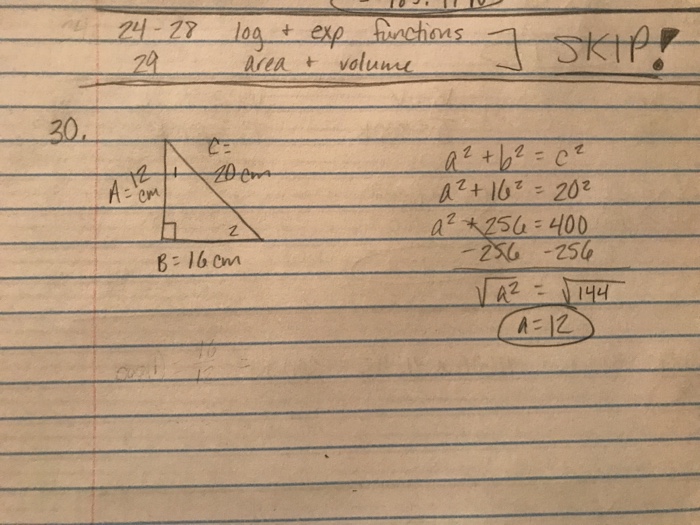 24-28 log + exp functions ] SKIP!
29 area + volume
30.
C=
20 cm
A=12 cm
1
2
B=16cm
a² + b² = c²
a² + 16² = 20²
a² + 256 = 400
-256 -256
√a² = √144
a=12